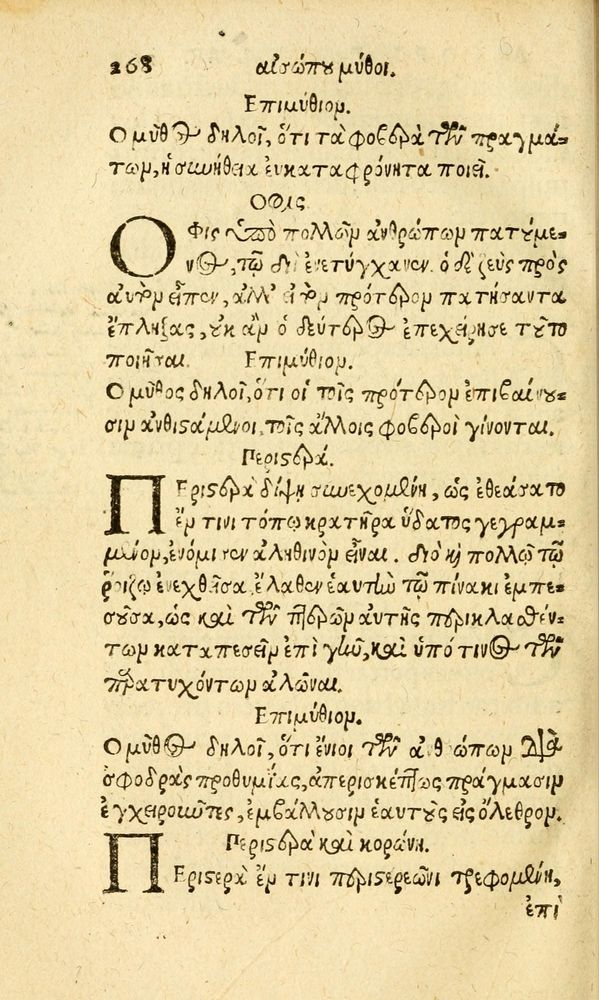 268 αἰσώπου μῦθοι.
Επιμύθιον.
Ο μῦθος δηλοῖ, ὅτι τὰ φοβερὰ τῶν πραγμά-
των, ἡ συνήθεια εὐκαταφρόνητα ποιεῖ.
Οφις
Οφις ὑπὸ πολλῶν ἀνθρώπων πατούμε-
νος, τῷ διῒ ἐνετύγχανεν. ὁ δὲ ζεὺς πρὸς
αὐτὸν εἶπεν, ἀλλ' εἰ τὸν πρότερον πατήσαντα
ἔπληξας, οὐκ ἂν ὁ δεύτερος ἐπεχείρησε τοῦτο
ποιῆσαι. Επιμύθιον.
Ο μῦθος δηλοῖ, ὅτι οἱ τοῖς πρότερον ἐπιβαίνου-
σιν ἀνθιστάμενοι, τοῖς ἄλλοις φοβεροὶ γίνονται.
Περιστερά.
Περιστερὰ δίψῃ συνεχομένη, ὡς ἐθεάσατο
ἔν τινι τόπῳ κρατῆρα ὕδατος γεγραμ-
μένον, ἐνόμισεν ἀληθινὸν εἶναι. διὸ καὶ πολλῷ τῷ
ῥοίζῳ ἐνεχθεῖσα, ἔλαθεν ἑαυτὴν τῷ πίνακι ἐμπε-
σοῦσα, ὡς καὶ τῶν πτερῶν αὐτῆς περικλασθέν-
των καταπεσεῖν ἐπὶ γῆν, καὶ ὑπό τινος τῶν
παρατυχόντων ἁλῶναι.
Επιμύθιον.
Ο μῦθος δηλοῖ, ὅτι ἔνιοι τῶν ἀνθρώπων διὰ
σφοδρὰς προθυμίας, ἀπερισκέπτως πράγμασιν
ἐγχειροῦντες, ἐμβάλλουσιν ἑαυτοὺς εἰς ὄλεθρον.
Περιστερὰ καὶ κορώνη.
Περιστερὰ ἔν τινι περιστερεῶνι τρεφομένη,
ἐπὶ